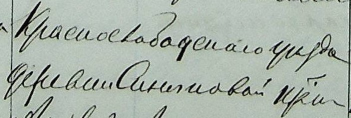 Краснослободскаго уезда
деревни Синяковой кре-